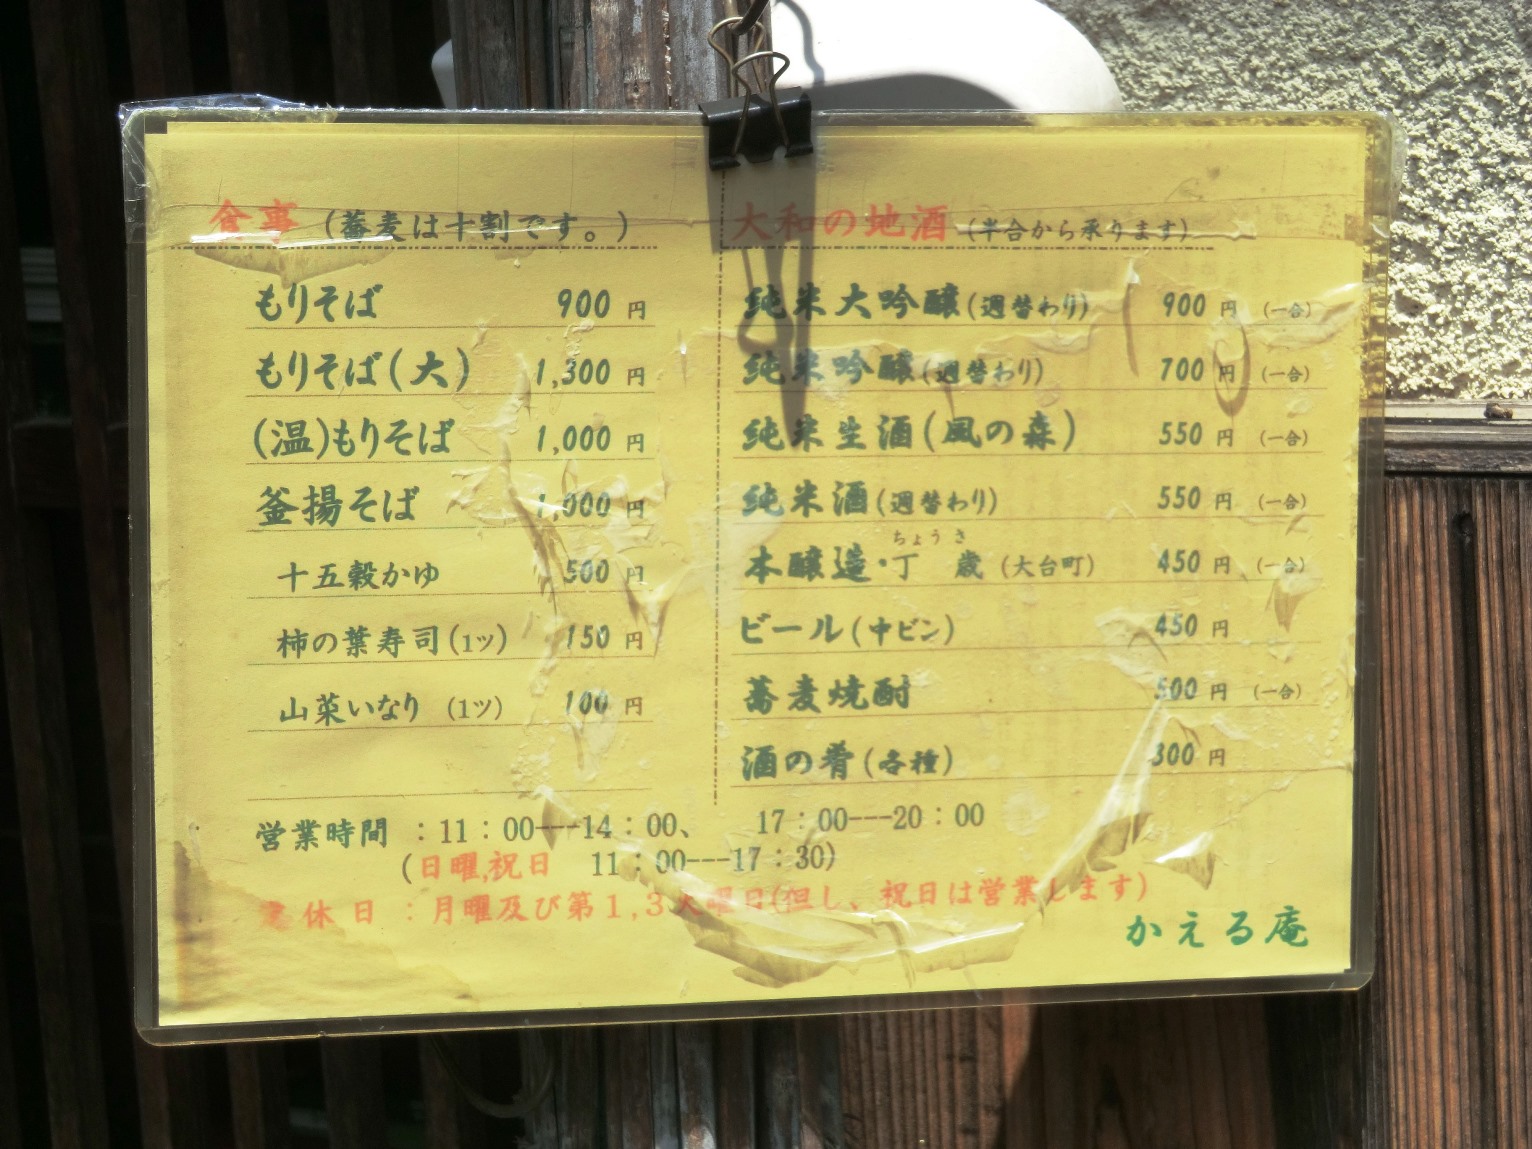 食事 (蕎麦は十割です。)
もりそば 900 円
もりそば(大) 1,300 円
(温)もりそば 1,000 円
釜揚そば 1,000 円
十五穀かゆ 500 円
柿の葉寿司(1ツ) 150 円
山菜いなり (1ツ) 100 円
大和の地酒 (半合から承ります)
純米大吟醸(週替わり) 900 円 (一合)
純米吟醸(週替わり) 700 円 (一合)
純米生酒(風の森) 550 円 (一合)
純米酒(週替わり) 550 円 (一合)
ちょうさ
本醸造・丁 歳 (大台町) 450 円 (一合)
ビール(中ビン) 450 円
蕎麦焼酎 500 円 (一合)
酒の肴(各種) 300 円
営業時間 :11:00---14:00、 17:00---20:00
(日曜,祝日 11:00---17:30)
休日 :月曜及び第1,3火曜日(但し、祝日は営業します)
かえる庵